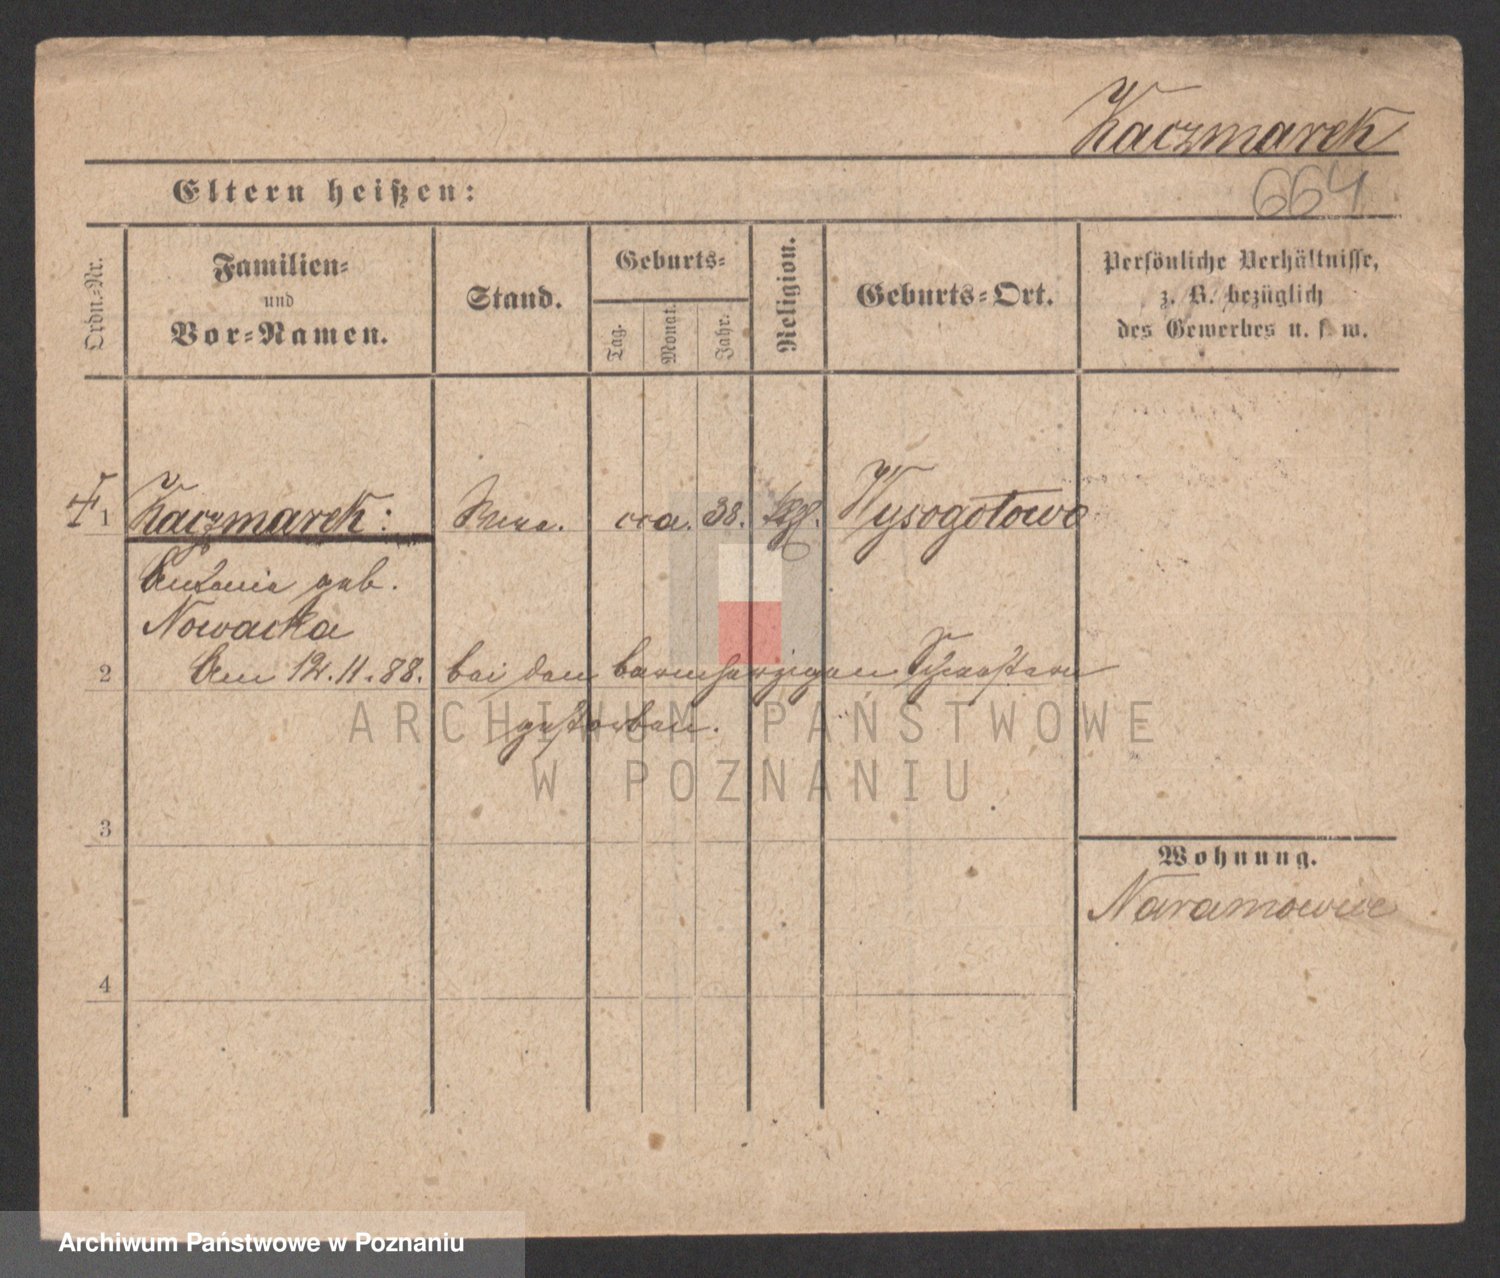 Kaczmarek
664
Eltern heißen:
Ordn.-Nr.
Familien- und Vor-Namen.
Stand.
Geburts-
Tag.
Monat.
Jahr.
Religion.
Geburts-Ort.
Persönliche Verhältnisse,
z. B. bezüglich
des Gewerbes u. s. w.
1 Kaczmarek: cca. 38. Wysogotowo
Antonie geb.
Nowacka
2 Am 12.11.88. bei den barmherzigen Schwestern
gestorben.
ARCHIWUM PAŃSTWOWE
W POZNANIU
3
Wohnung.
Naramowice
4
Archiwum Państwowe w Poznaniu